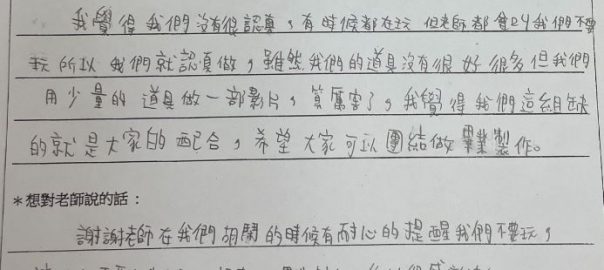 我覺得我們沒有很認真，有時候都在玩 但老師都會叫我們不要
玩 所以 我們就認真做，雖然我們的道具沒有很好 很多但我們
用少量的 道具做一部影片，算厲害了，我覺得我們這組缺
的就是大家的配合，希望大家可以團結做畢業製作。
＊想對老師說的話：
謝謝老師在我們胡鬧的時候有耐心的提醒我們不要玩，